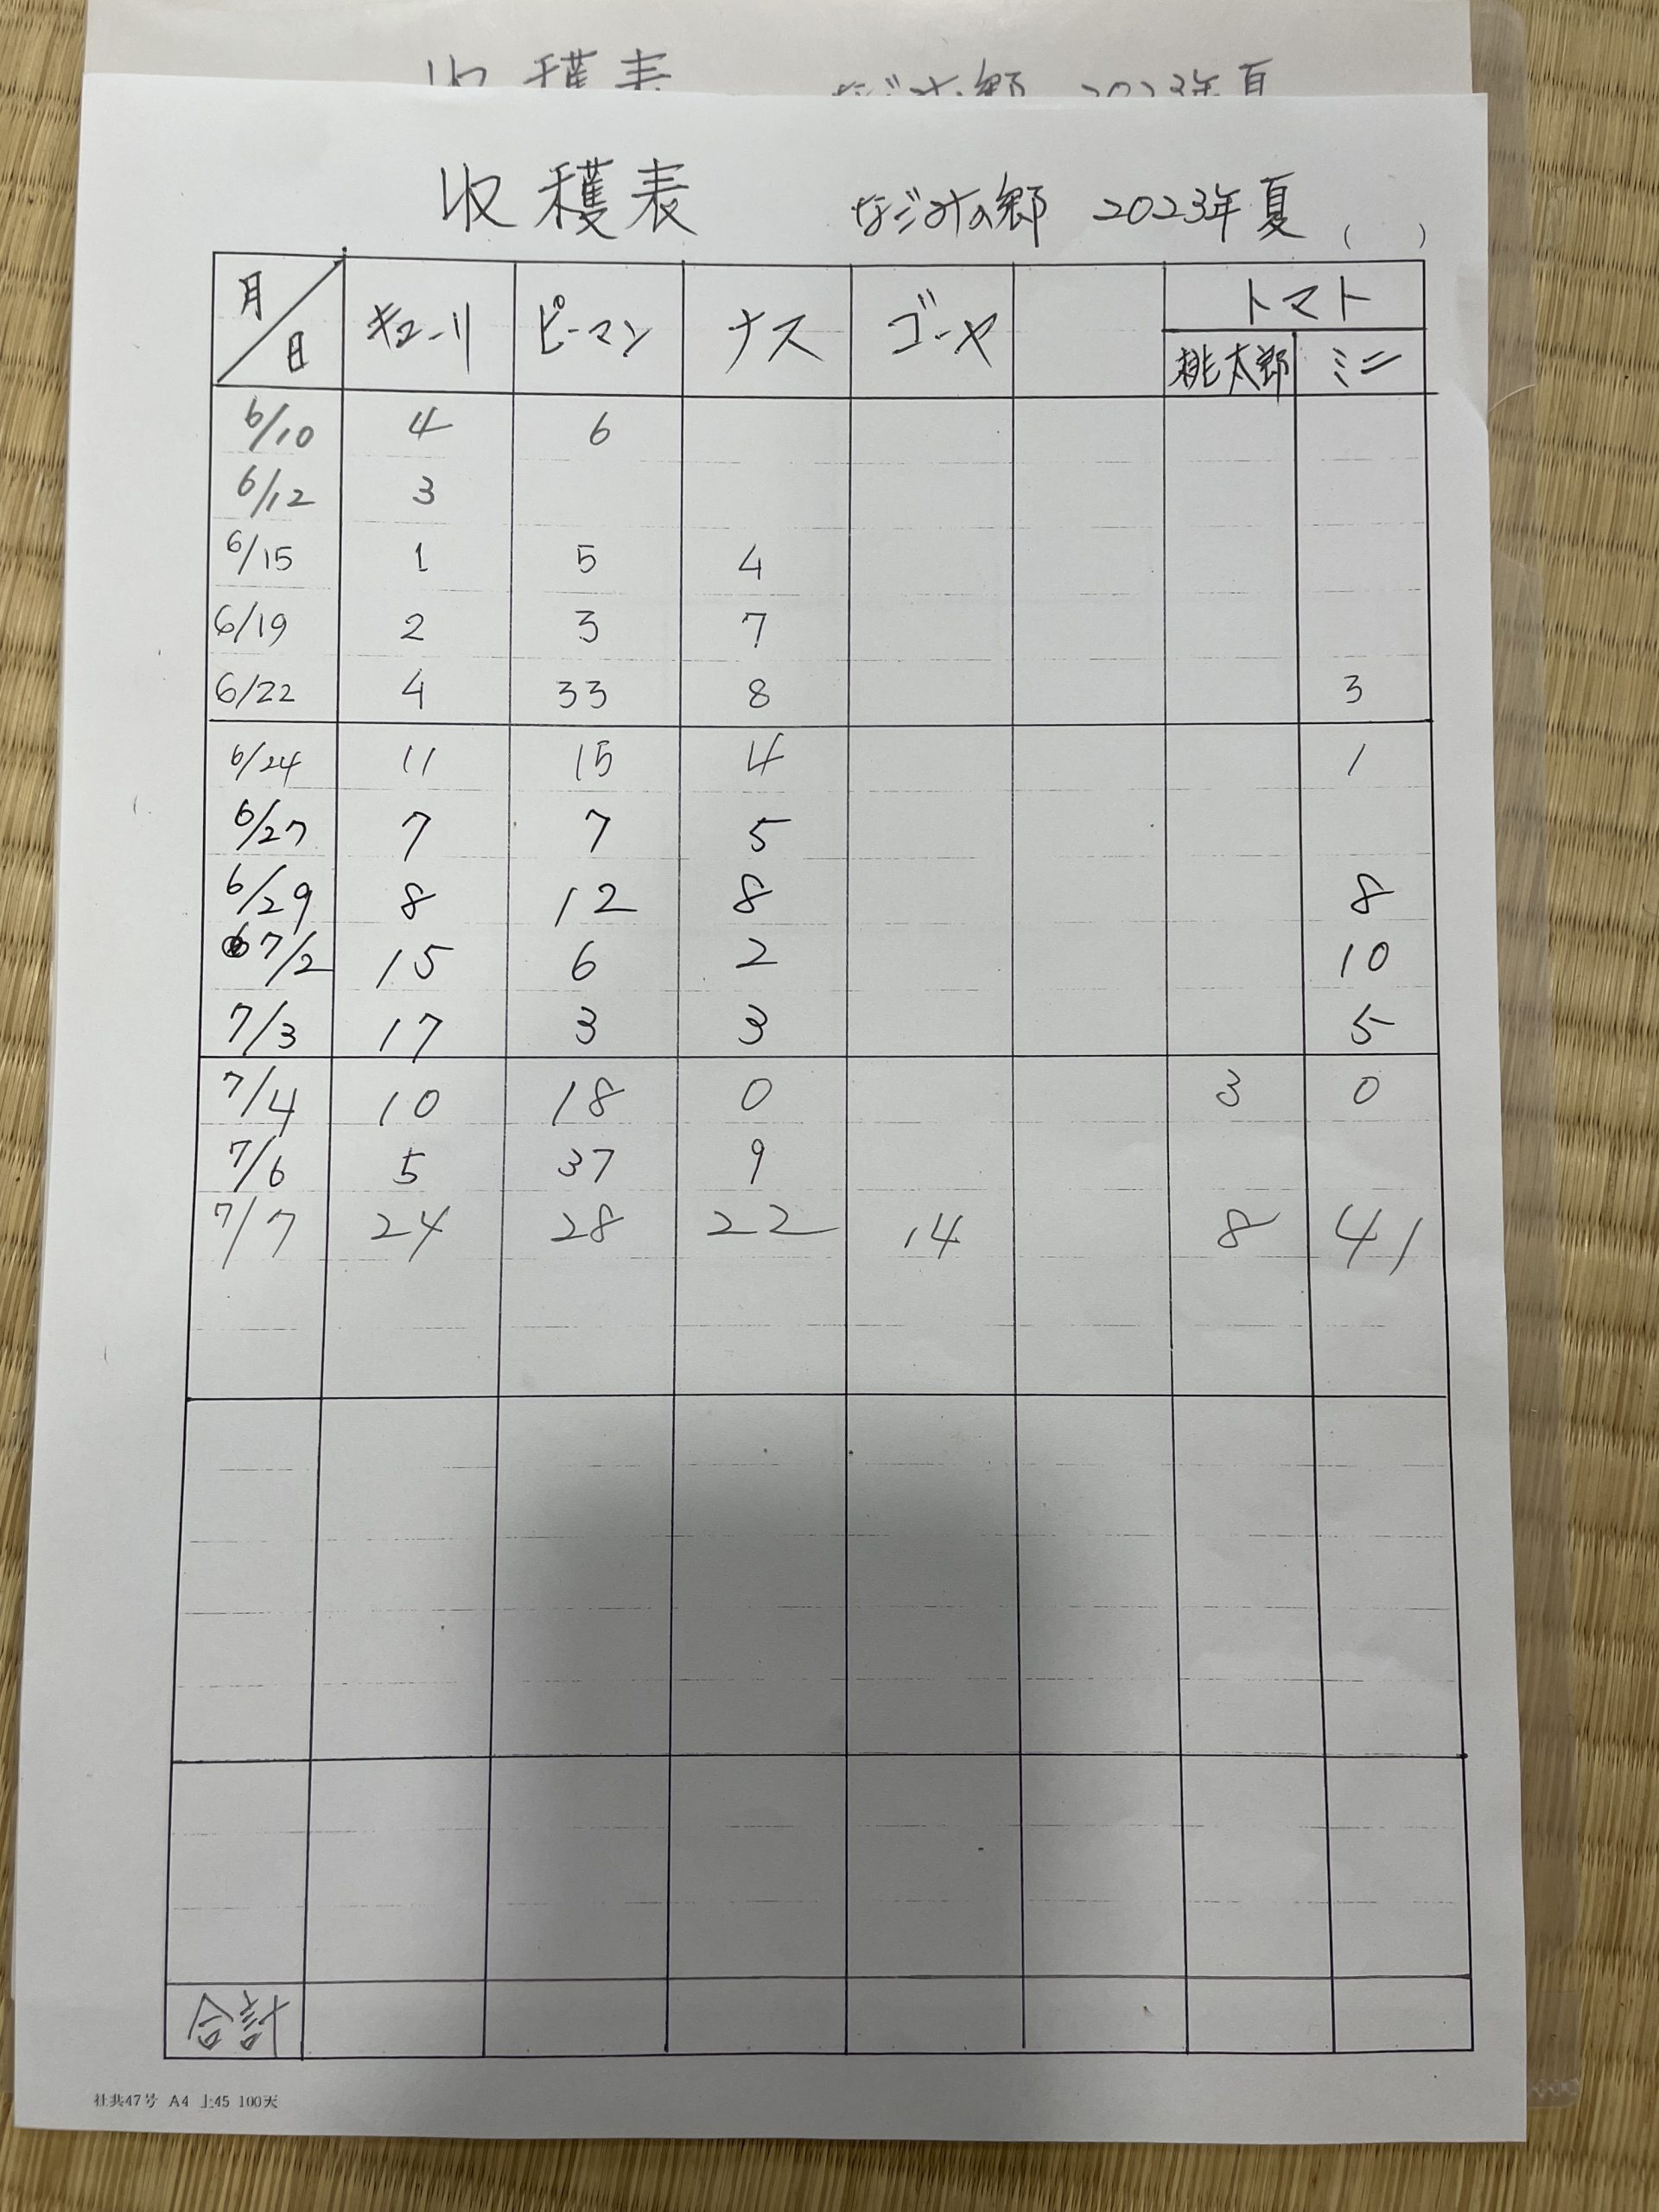 収穫表 なじみの郷 2023年夏
収穫表 なじみの郷 2023年夏 ( )
月/日 キューリ ピーマン ナス ゴーヤ トマト
桃太郎 ミニ
6/10 4 6
6/12 3
6/15 1 5 4
6/19 2 3 7
6/22 4 33 8 3
6/24 11 15 4 1
6/27 7 7 5
6/29 8 12 8 8
7/2 15 6 2 10
7/3 17 3 3 5
7/4 10 18 0 3 0
7/6 5 37 9
7/7 24 28 22 14 8 41
合計
社共47号 A4 上45 100天